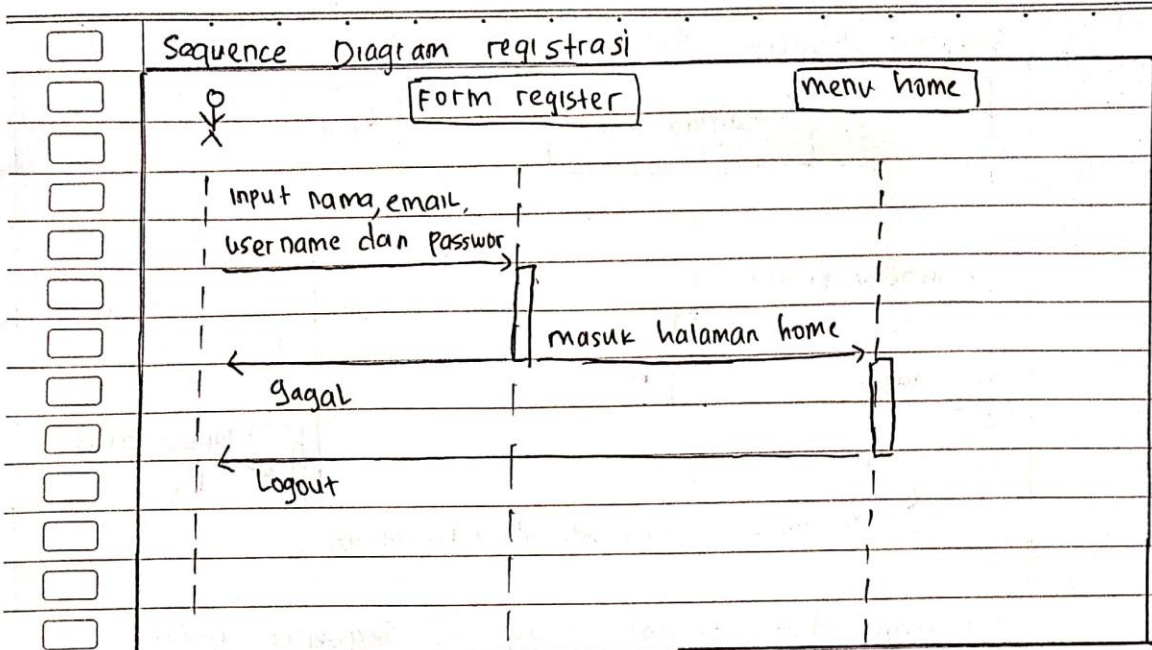 Sequence Diagram registrasi
Form register
menu home
Input nama, email,
username dan passwor
masuk halaman home
gagal
Logout